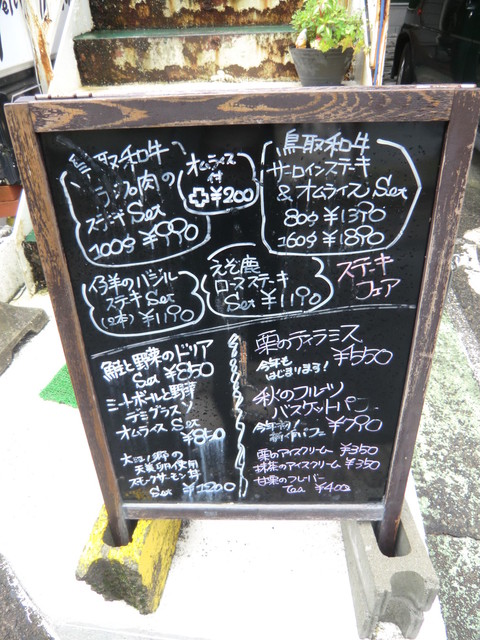 鳥取和牛
ランプ肉の
ステーキ Set
100g ¥990
オムライス
付
¥200
鳥取和牛
サーロインステーキ
& オムライス Set
80g ¥1390
160g ¥1890
仔羊のバジル
ステーキ Set
(2本) ¥1190
えぞ鹿
ロースステーキ
Set ¥1190
ステーキ
フェア
鮭と野菜のドリア
Set ¥850
ミートボールと野菜
デミグラスソ
オムライス Set
¥850
大江ノ郷の
天美卵使用
スモークサーモン丼
Set ¥1200
栗のティラミス
¥550
今年も
はじまります!
秋のフルーツ
バスケットパフ
¥790
栗のアイスクリーム ¥350
抹茶のアイスクリーム ¥350
甘栗のフレーバー
Tea ¥400